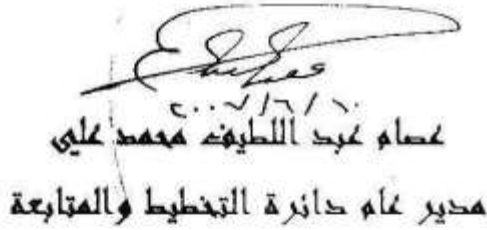 ٢٠٠٧/٦/١٠
عصام عبد اللطيف محمد علي
مدير عام دائرة التخطيط والمتابعة